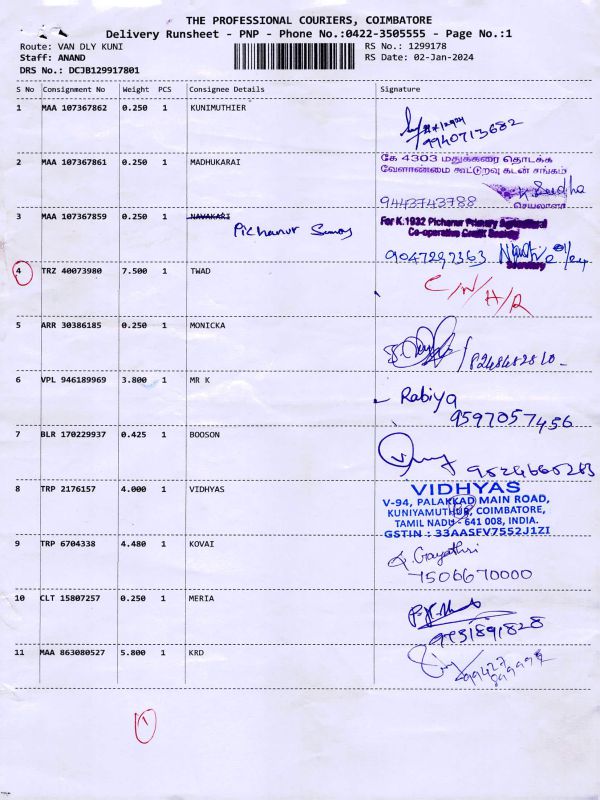 THE PROFESSIONAL COURIERS, COIMBATORE
Delivery Runsheet - PNP - Phone No.:0422-3505555 - Page No.:1
Route: VAN DLY KUNI RS No.: 1299178
Staff: ANAND RS Date: 02-Jan-2024
DRS No.: DCJB129917801
S No Consignment No Weight PCS Consignee Details Signature
1 MAA 107367862 0.250 1 KUNIMUTHIER
9940713682
2 MAA 107367861 0.250 1 MADHUKARAI
கே 4303 மதுக்கரை தொடக்க
வேளாண்மை கூட்டுறவு கடன் சங்கம்
9443743788
செயலாளர்
3 MAA 107367859 0.250 1 NAVAKARI
Pichanur
For K.1932 Pichanur Primary Agricultural
Co-operative Credit Society
9047297363
Secretary
4 TRZ 40073980 7.500 1 TWAD
C/N/H/R
5 ARR 30386185 0.250 1 MONICKA
6 VPL 946189969 3.800 1 MR K
Rabiya
9597057456
7 BLR 170229937 0.425 1 BOOSON
8 TRP 2176157 4.000 1 VIDHYAS
VIDHYAS
V-94, PALAKKAD MAIN ROAD,
KUNIYAMUTHUR, COIMBATORE,
TAMIL NADU - 641 008, INDIA.
GSTIN : 33AASFV7552J1ZI
9 TRP 6704338 4.480 1 KOVAI
Gayathri
7506670000
10 CLT 15807257 0.250 1 MERIA
11 MAA 863080527 5.800 1 KRD